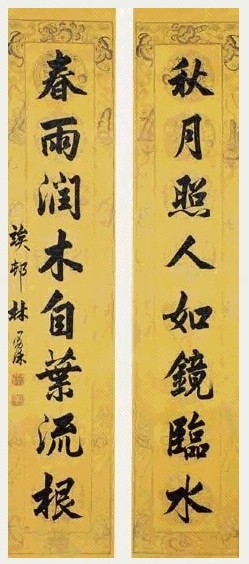 秋月照人如鏡臨水
春雨潤木自葉流根
竢邨林則徐